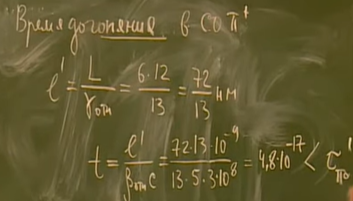 Время догоняния в СО π⁺
l' = L/γотн = 6·12/13 = 72/13 нм
t = l'/βотн c = 72·13·10⁻⁹/13·5·3·10⁸ = 4,8·10⁻¹⁷ < τ